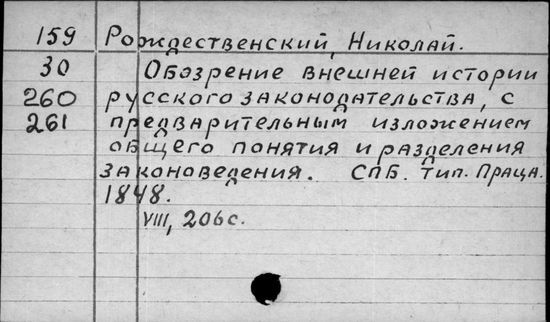 159 Рождественский, Николай.
30 Обозрение внешней истории
260 русского законодательства, с
261 предварительным изложением
общего понятия и разделения
законоведения. СПБ. тип. Праца.
1848.
VIII, 206с.